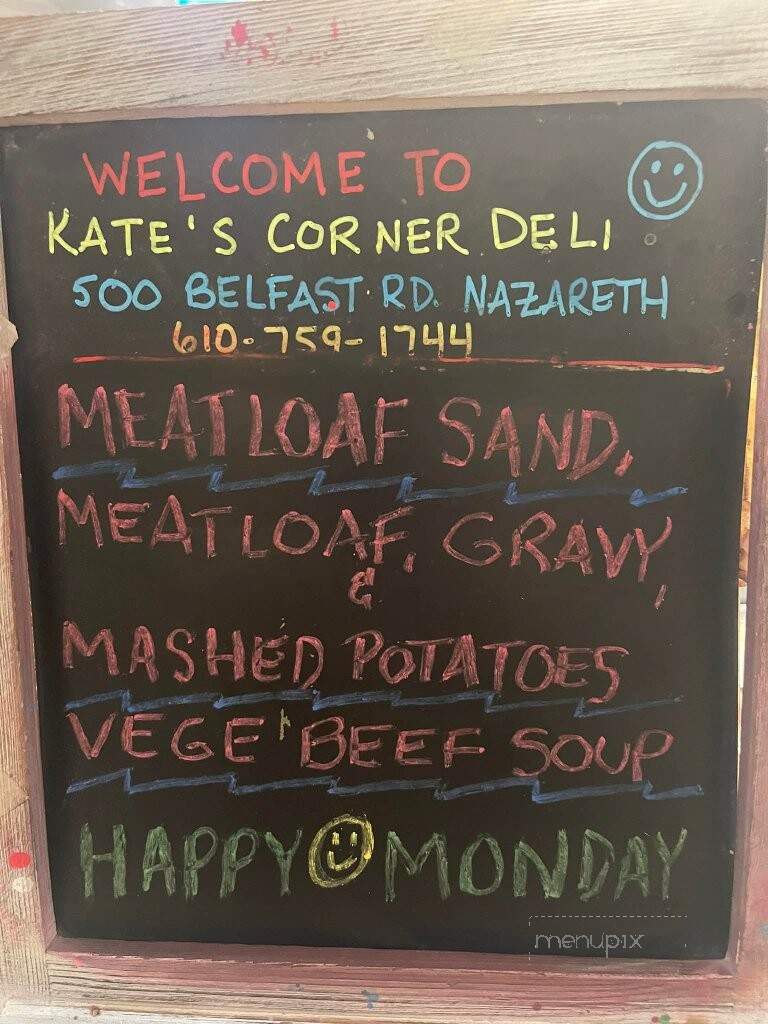 WELCOME TO
KATE'S CORNER DELI
500 BELFAST RD. NAZARETH
610-759-1744
MEATLOAF SAND.
MEATLOAF, GRAVY,
&
MASHED POTATOES
VEGE' BEEF SOUP
HAPPY MONDAY
menupix